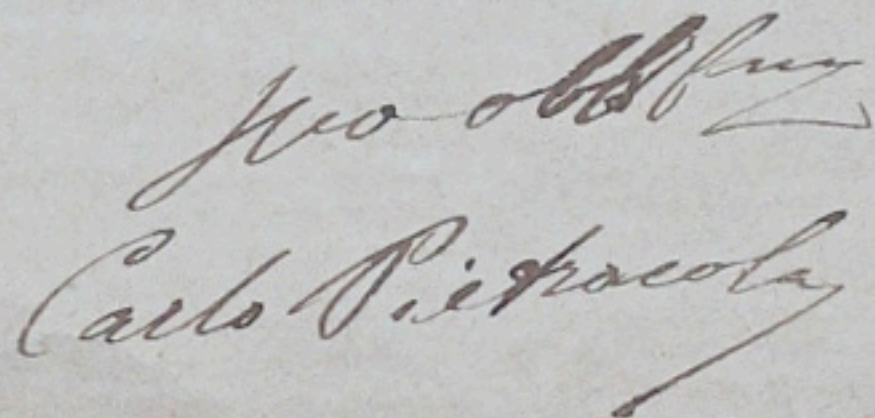 Suo obbl
Carlo Pietracola